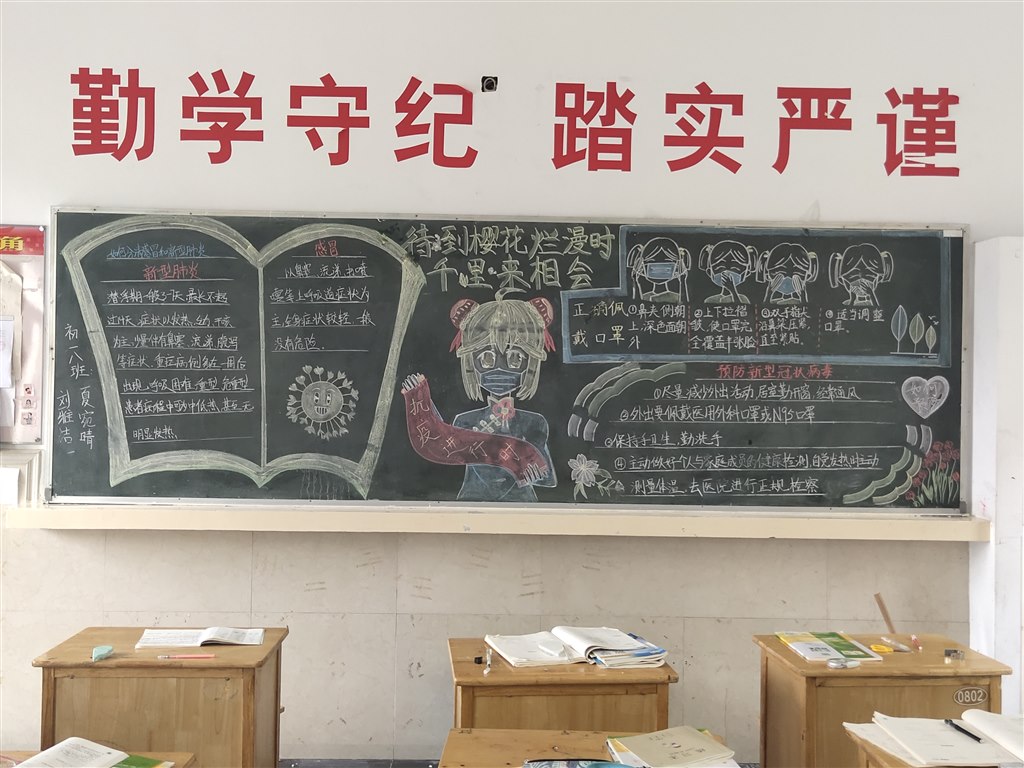 勤学守纪 踏实严谨
待到樱花烂漫时
千里来相会
如何分清感冒和新型肺炎
新型肺炎
潜伏期一般3-7天 最长不超
过14天,症状以发热、乏力、干咳
为主,少数伴有鼻塞、流涕、腹泻
等症状,重症病例多在一周后
出现呼吸困难,重型、危重型
患者病程中可为中低热,甚至无
明显发热
感冒
以鼻塞 流涕 打喷
嚏等上呼吸道症状为
主,全身症状较轻,一般
没有危险。
初一八班:夏宛晴
刘雅洁
抗疫进行时
正确佩
戴口罩
①鼻夹侧朝
上,深色面朝
外
②上下拉褶
皱,使口罩完
全覆盖
③双手指尖
沿鼻梁压紧,
直至紧贴。
④适当调整
口罩。
预防新型冠状病毒
①尽量减少外出活动 居室勤开窗,经常通风
②外出要佩戴医用外科口罩或N95口罩
③保持手卫生,勤洗手
④主动做好个人与家庭成员的健康检测,自觉发热时主动
测量体温、去医院进行正规检察
0802